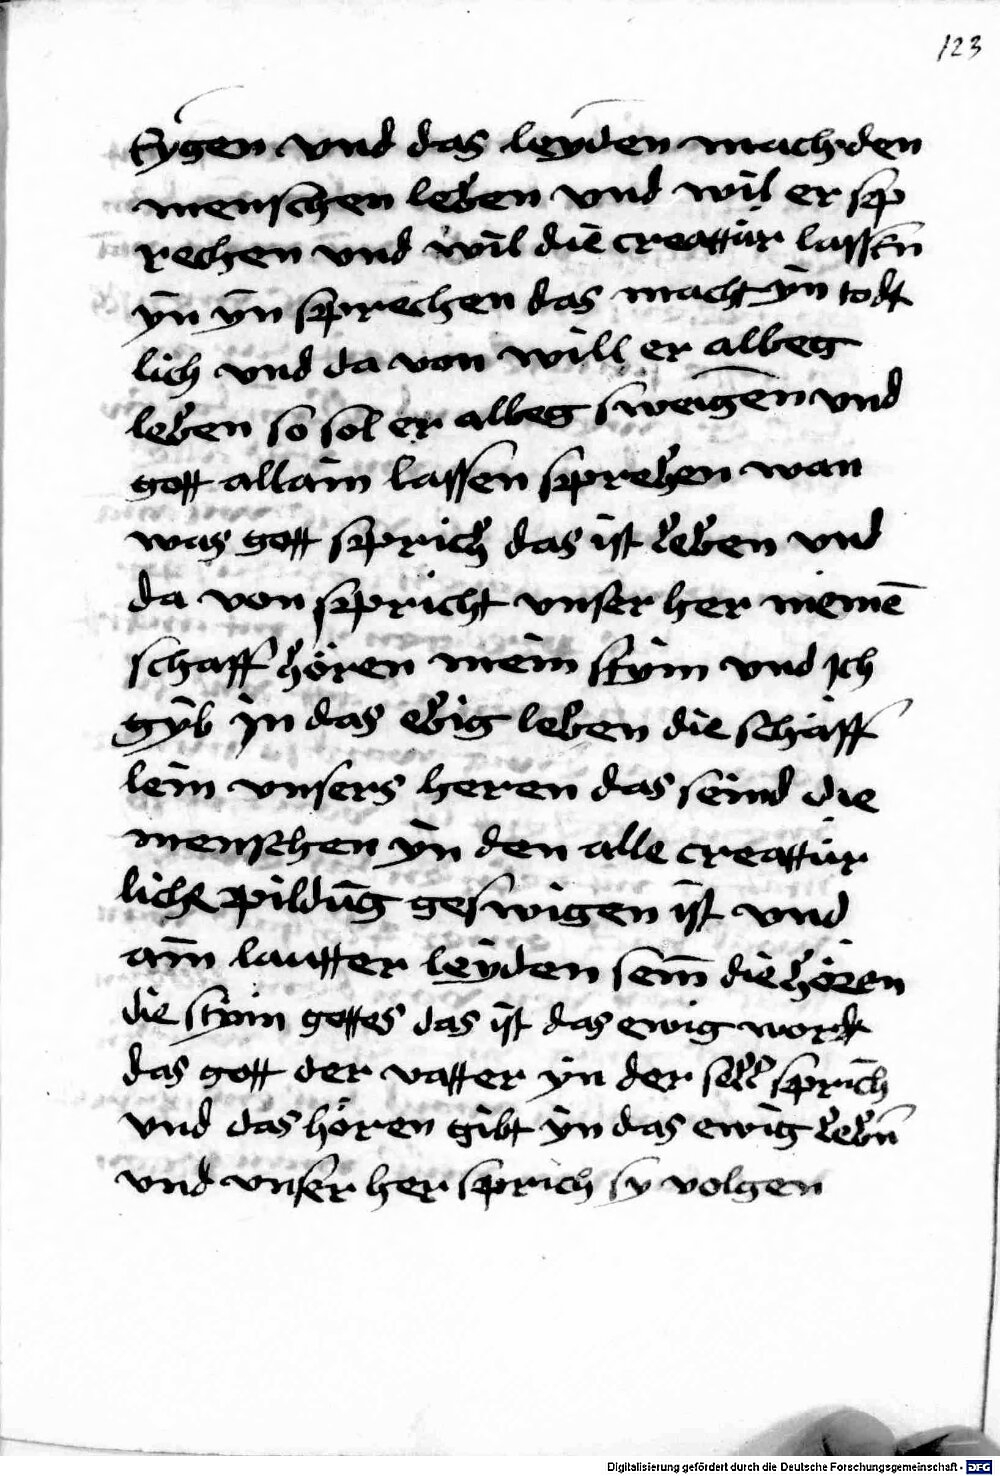 123
sÿgen vnd das leyden mach den
menschen leben vnd wil er sp
rechen vnd wil die creattur lassen
ÿn ÿn sprechen das macht ÿn todt
lich vnd da von will er albeg
leben so sol er albeg sweigen vnd
gott allain lassen sprehen wan
was gott sprich das ist leben vnd
da von spricht vnser her meinē
schaff hören mein stÿm vnd Ich
gÿb ÿn das ebig leben die schäff
lein vnsers heren das seind die
menschen ÿn den alle creattür
liche pildūg geswigen ist vnd
aim lautter leyden sein die hören
die stÿm gottes das ist das ewig wordt
das gott der vatter ÿn der sell sprich
vnd das hören gibt ÿn das ewig lebn̄
vnd vnser her sprich sy volgen
Digitalisierung gefördert durch die Deutsche Forschungsgemeinschaft - DFG